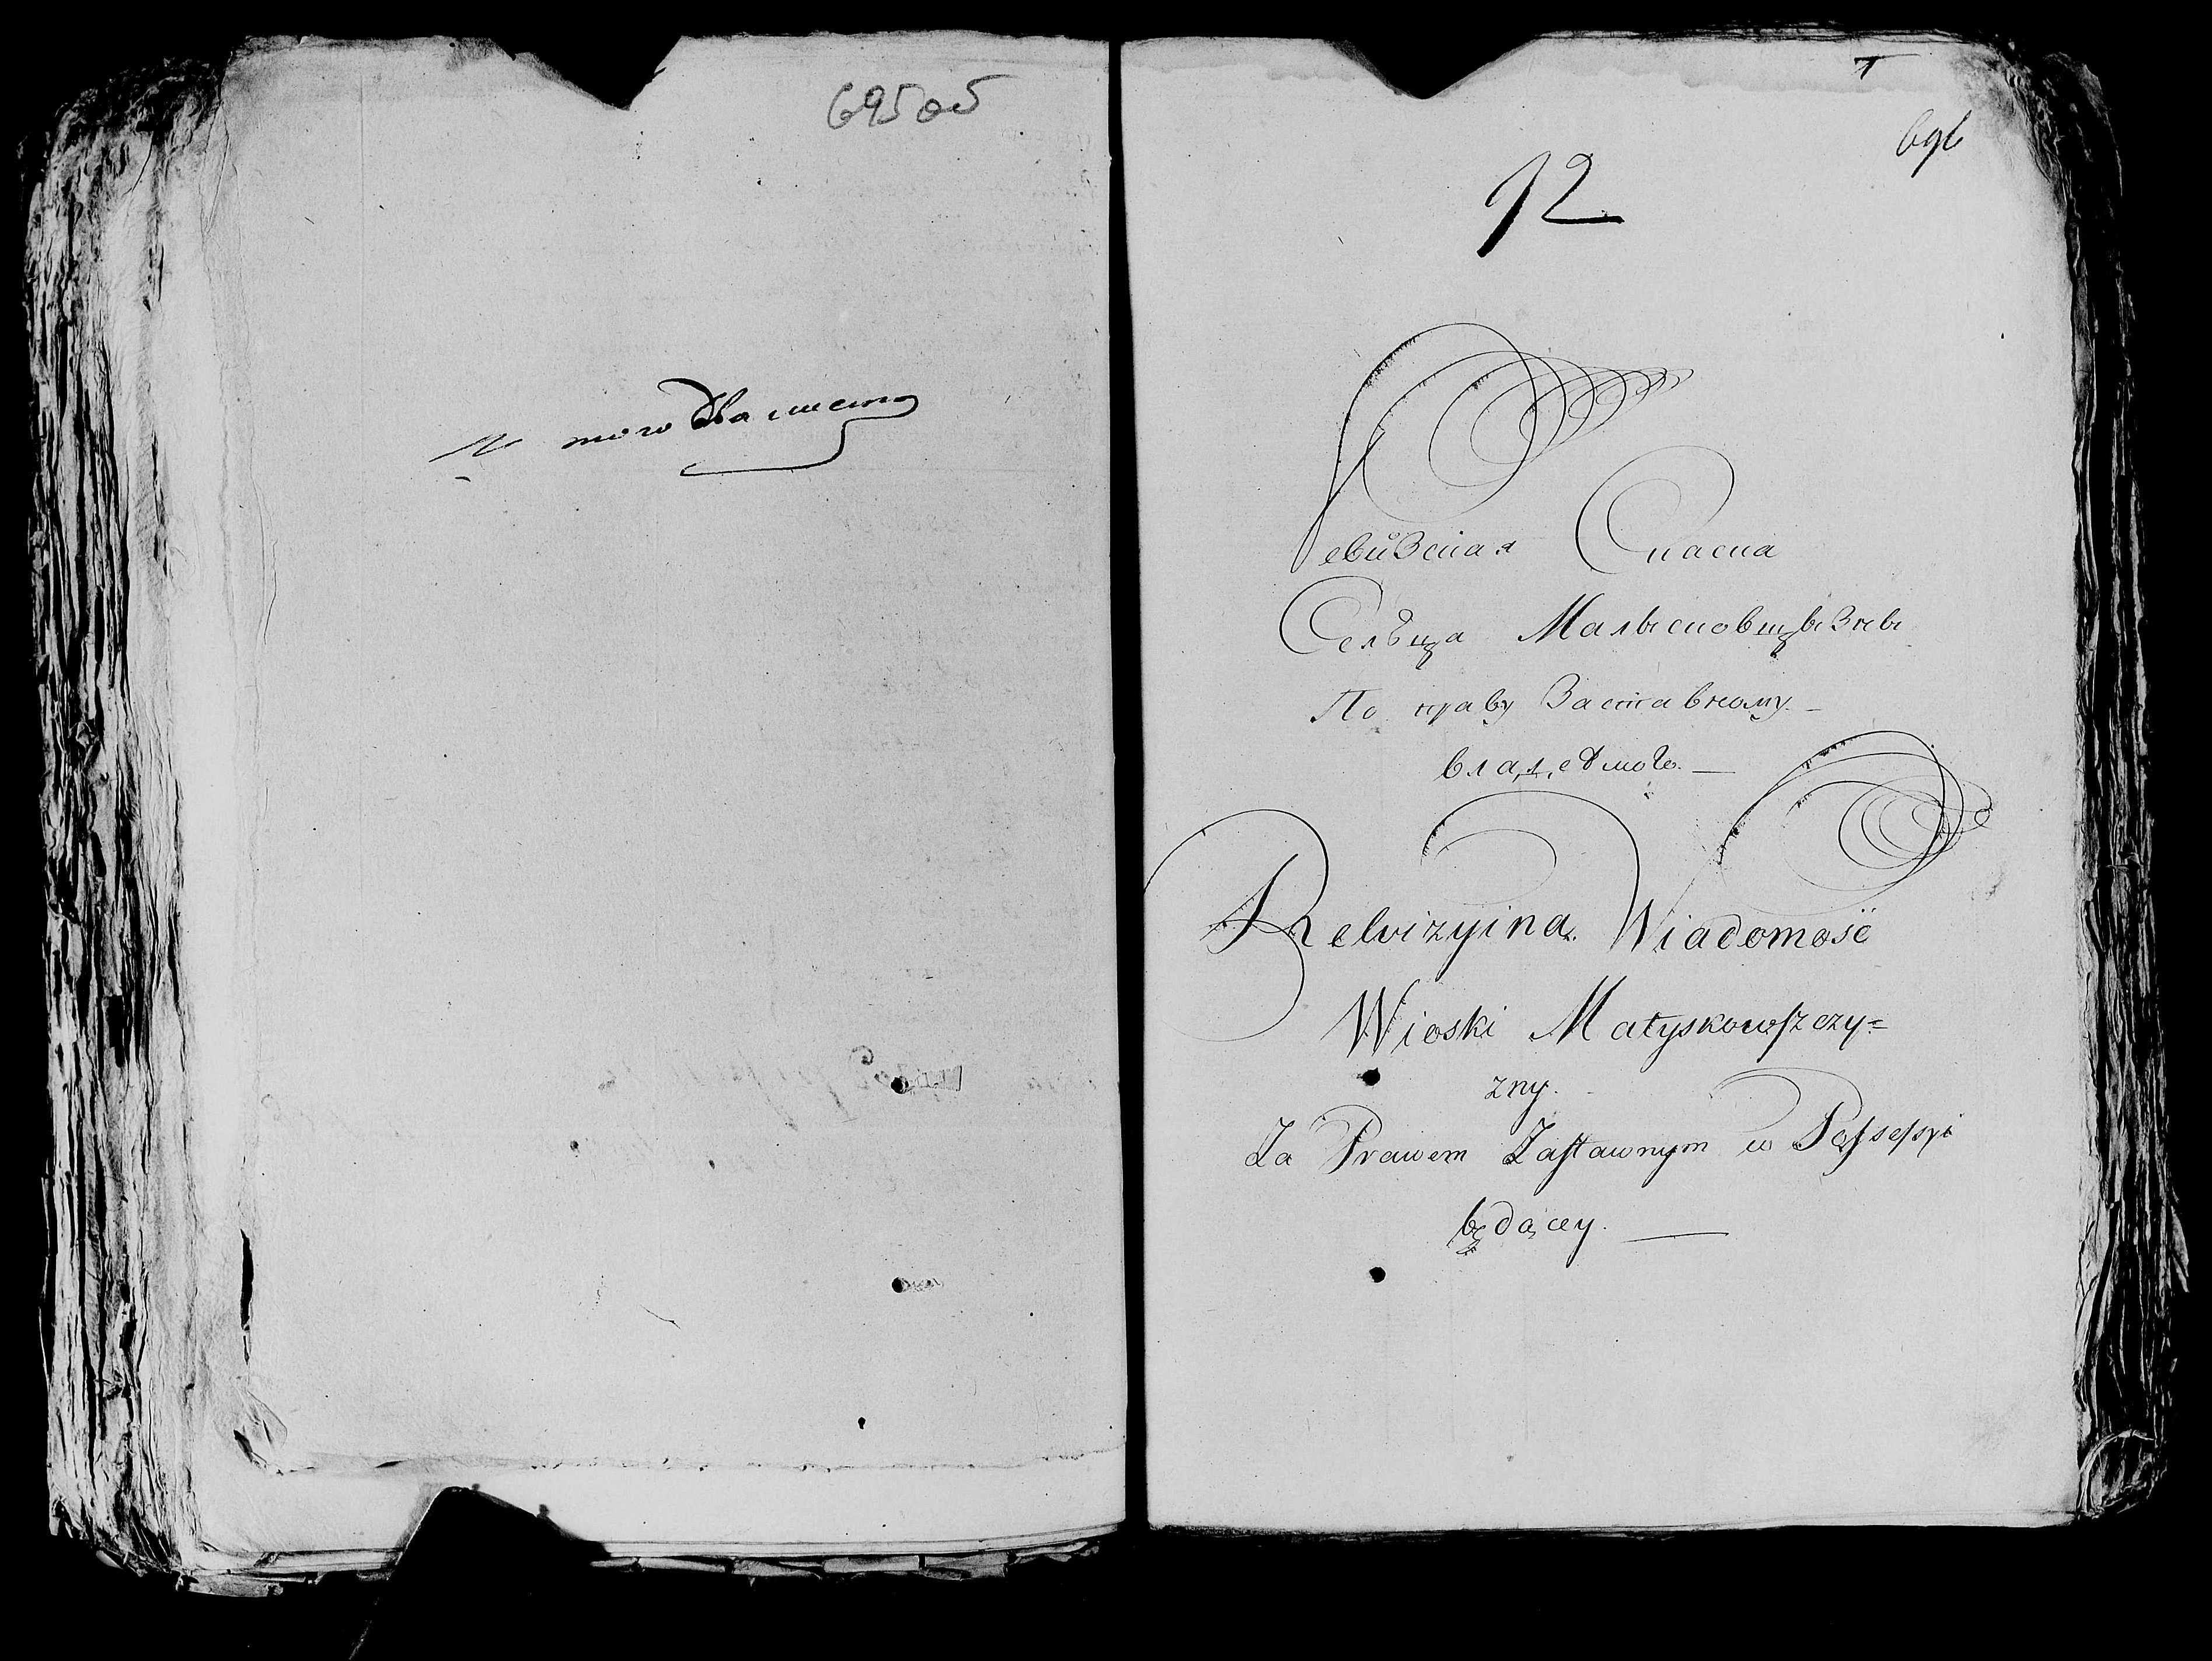 695 об
Итого два листа
696
12
Ревизская Скаска
Селъца Матысковщызны
По праву Заставному
владемого
Rewizyina Wiadomość
Wioski Matyskowszczy=
zny.
Za Prawem Zastawnym w Possessyi
będącey.